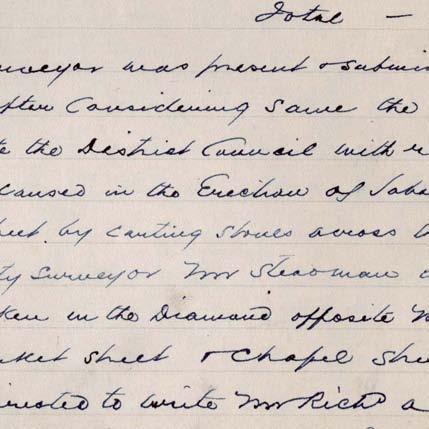 Total —
rveyor was present & submi
fter Considering Same the
te the District Council with r
caused in the Erection of
eet by carting stones across
ty Surveyor Mr Steadman
ken in the Diamond opposite
rket Street & Chapel Stre
irected to write Mr Richd a